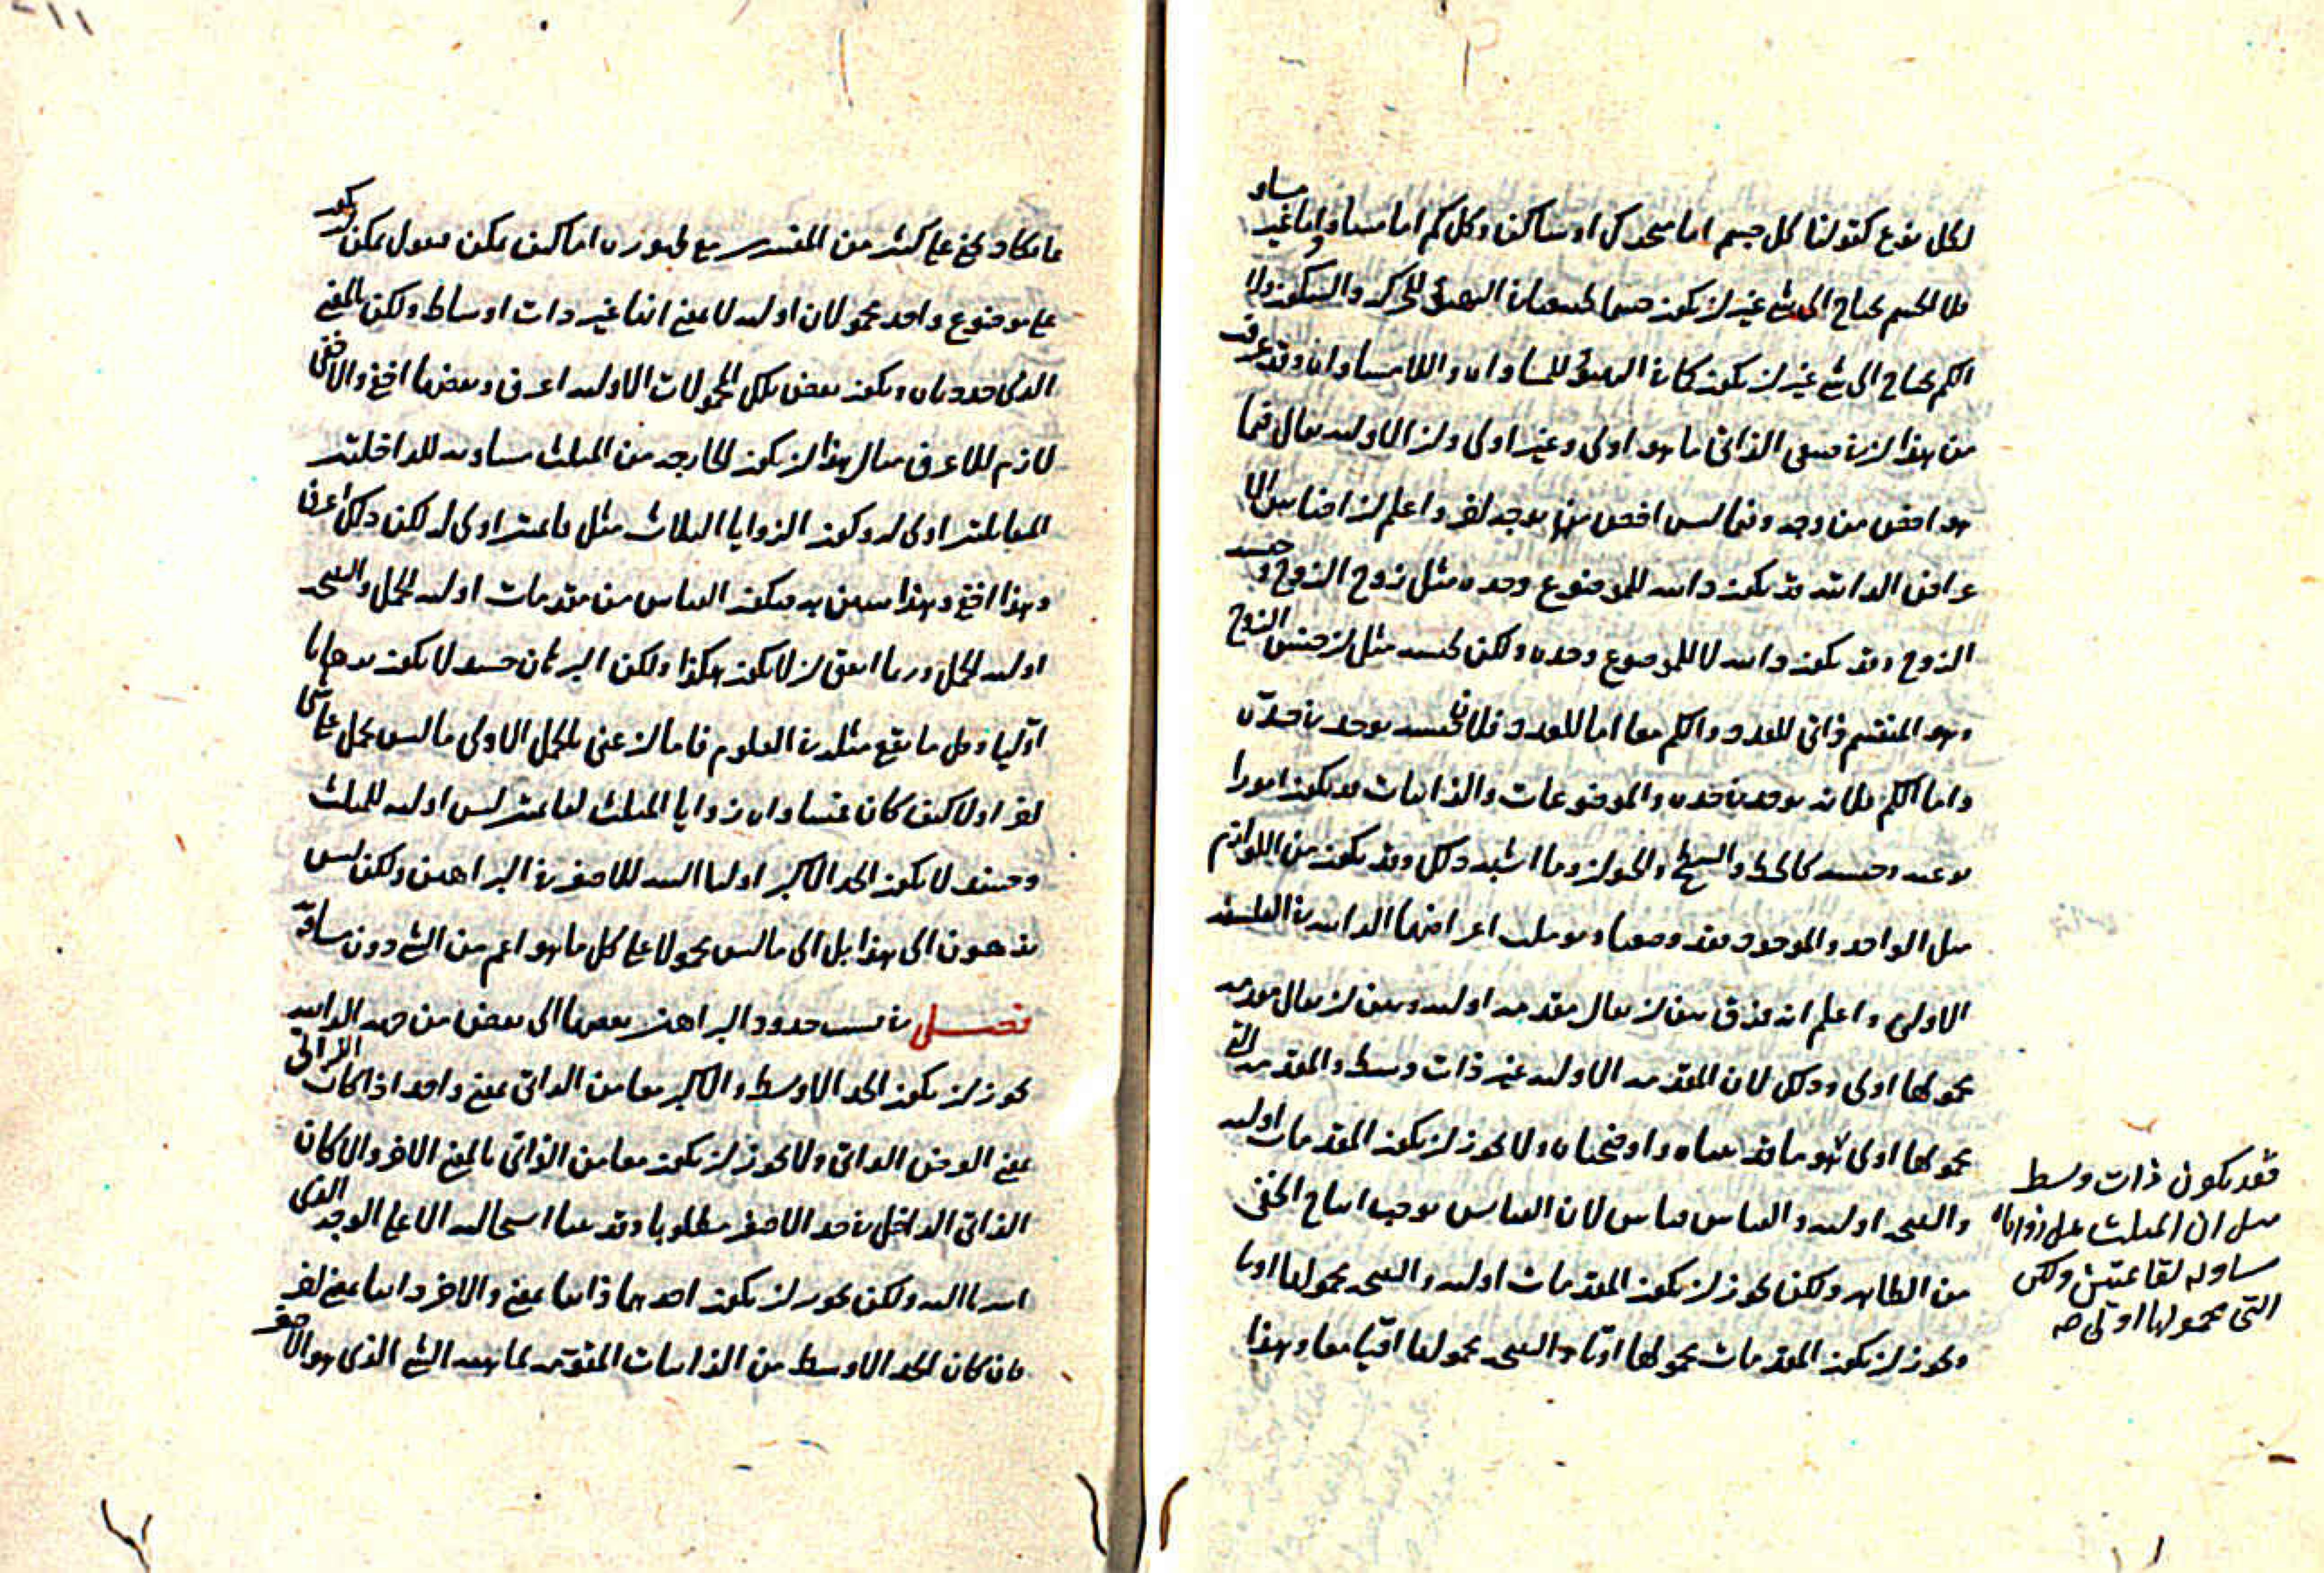 لكل نوع كقولنا كل جسم اما متحرك او ساكن وكل كم اما مساو واما غير مساو
فلا الجسم يحتاج الى شئ غير ان يكون جسما طبيعيا في التهيؤ للحركة والسكون ولا
الكم يحتاج الى شئ غير ان يكون كما في التهيؤ للمساواه واللامساواه وقد عرفت
من هذا ان في معنى الذاتي ما هو اولى وغير اولى وان الاولية يقال فيما
هو اخص من وجه وفيما ليس اخص منه بوجه اخر واعلم ان اجناس الا
عراض الذاتية قد يكون ذاتية للموضوع وحده مثل زوج الزوج وجنسه
الزوج وقد يكون ذاتية لا للموضوع وحده ولكن لجنسه مثل ان جنس الزوج
وهو المنقسم ذاتي للعدد والكم معا اما للعدد فلان جنسه يوجد في حده
واما الكم فلانه يوجد في حده والموضوعات والذاتيات قد يكون امورا
نوعية وجنسية كالخط والسطح والحيوان وما اشبه ذلك وقد يكون من اللوازم
مثل الواحد والموجود فقد وصفا وطلب اعراضها الذاتية في الفلسفة
الاولى واعلم انه فرق بين ان يقال مقدمة اولية وبين ان يقال مقدمة
محمولها اولى وذلك لان المقدمة الاولية غير ذات وسط والمقدمة التى
محمولها اولى هو ما قد بيناه واوضحناه ولا يجوز ان يكون المقدمات اولية
والنتيجة اولية والقياس قياس لان القياس يوجب انتاج الخفى
من الظاهر ولكن يجوز ان يكون المقدمات اولية والنتيجة محمولها اوليا
ويجوز ان يكون المقدمات محمولها اوليا والنتيجة محمولها اوليا معا وهذا
فقد يكون ذات وسط
مثل ان المثلث على زواياه
مساوية لقائمتين ولكن
التى محمولها اولى صه
ما يكاد يخفى على كثير من المفسرين مع ظهوره اما كيف يمكن فنقول يمكن ان يكون
على موضوع واحد محمولان اولية لا بمعنى انها غير ذات اوساط ولكن بالمعنى
الذى حددناه ويكون بعض تلك المحمولات الاولية اعرف وبعضها اخفى والاخفى
لازم للاعرف مثال هذا ان يكون الخارجة من المثلث مساوية للداخلتين
المتقابلتين اولى له وكون الزوايا الثلاث مثل قائمتين اولى له لكن ذلك اعرف
وهذا اخفى وهذا يبين به فيكون القياس من مقدمات اولية الحمل والنتيجة
اولية الحمل وربما اتفق ان لا يكون هكذا ولكن البرهان حينئذ لا يكون برهانا
اوليا وكل ما يقع مثله في العلوم فاما ان عنى بالحمل الاولى ما ليس يحمل على شئ
اخر اولا كيف كان فمساواه زوايا المثلث لقائمتين ليس اولية للمثلث
وحينئذ لا يكون الحد الاكبر اوليا البتة للاصغر في البراهين ولكن ليس
يذهبون الى هذا بل الى ما ليس محمولا على كل ما هو اعم من الشئ دون مساقه
فصل في نسب حدود البراهين بعضها الى بعض من جهة الذاتية
يجوز ان يكون الحد الاوسط والاكبر معا من الذاتى بمعنى واحد اذا كان الذاتى
بمعنى العرض الذاتى ولا يجوز ان يكون معا من الذاتى بالمعنى الاخر والا كان
الذاتى الداخل في حد الاصغر مطلوبا وقد بينا استحالته الا على الوجه الذى
اشرنا اليه ولكن يجوز ان يكون احدهما ذاتيا بمعنى والاخر ذاتيا بمعنى اخر
فان كان الحد الاوسط من الذاتيات المقومة لماهية الشئ الذى هو الاصغر